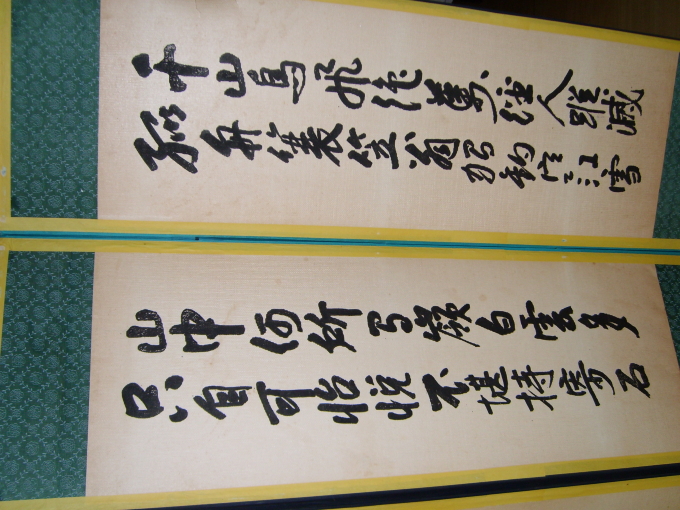 千山鳥飛絶萬徑人蹤滅
孤舟簑笠翁獨釣寒江雪
山中何所有嶺白雲多
只自可怡悅不堪持寄君